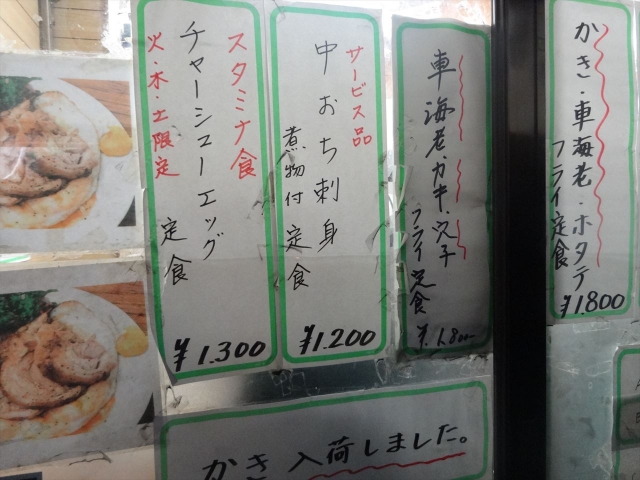 かき・車海老・ホタテ
フライ定食
¥1.800
車海老・カキ・穴子
フライ定食
¥1.800
サービス品
中おち刺身
煮物付定食
¥1.200
スタミナ食
チャーシューエッグ
定食
火・木・土限定
¥1.300
かき入荷しました。